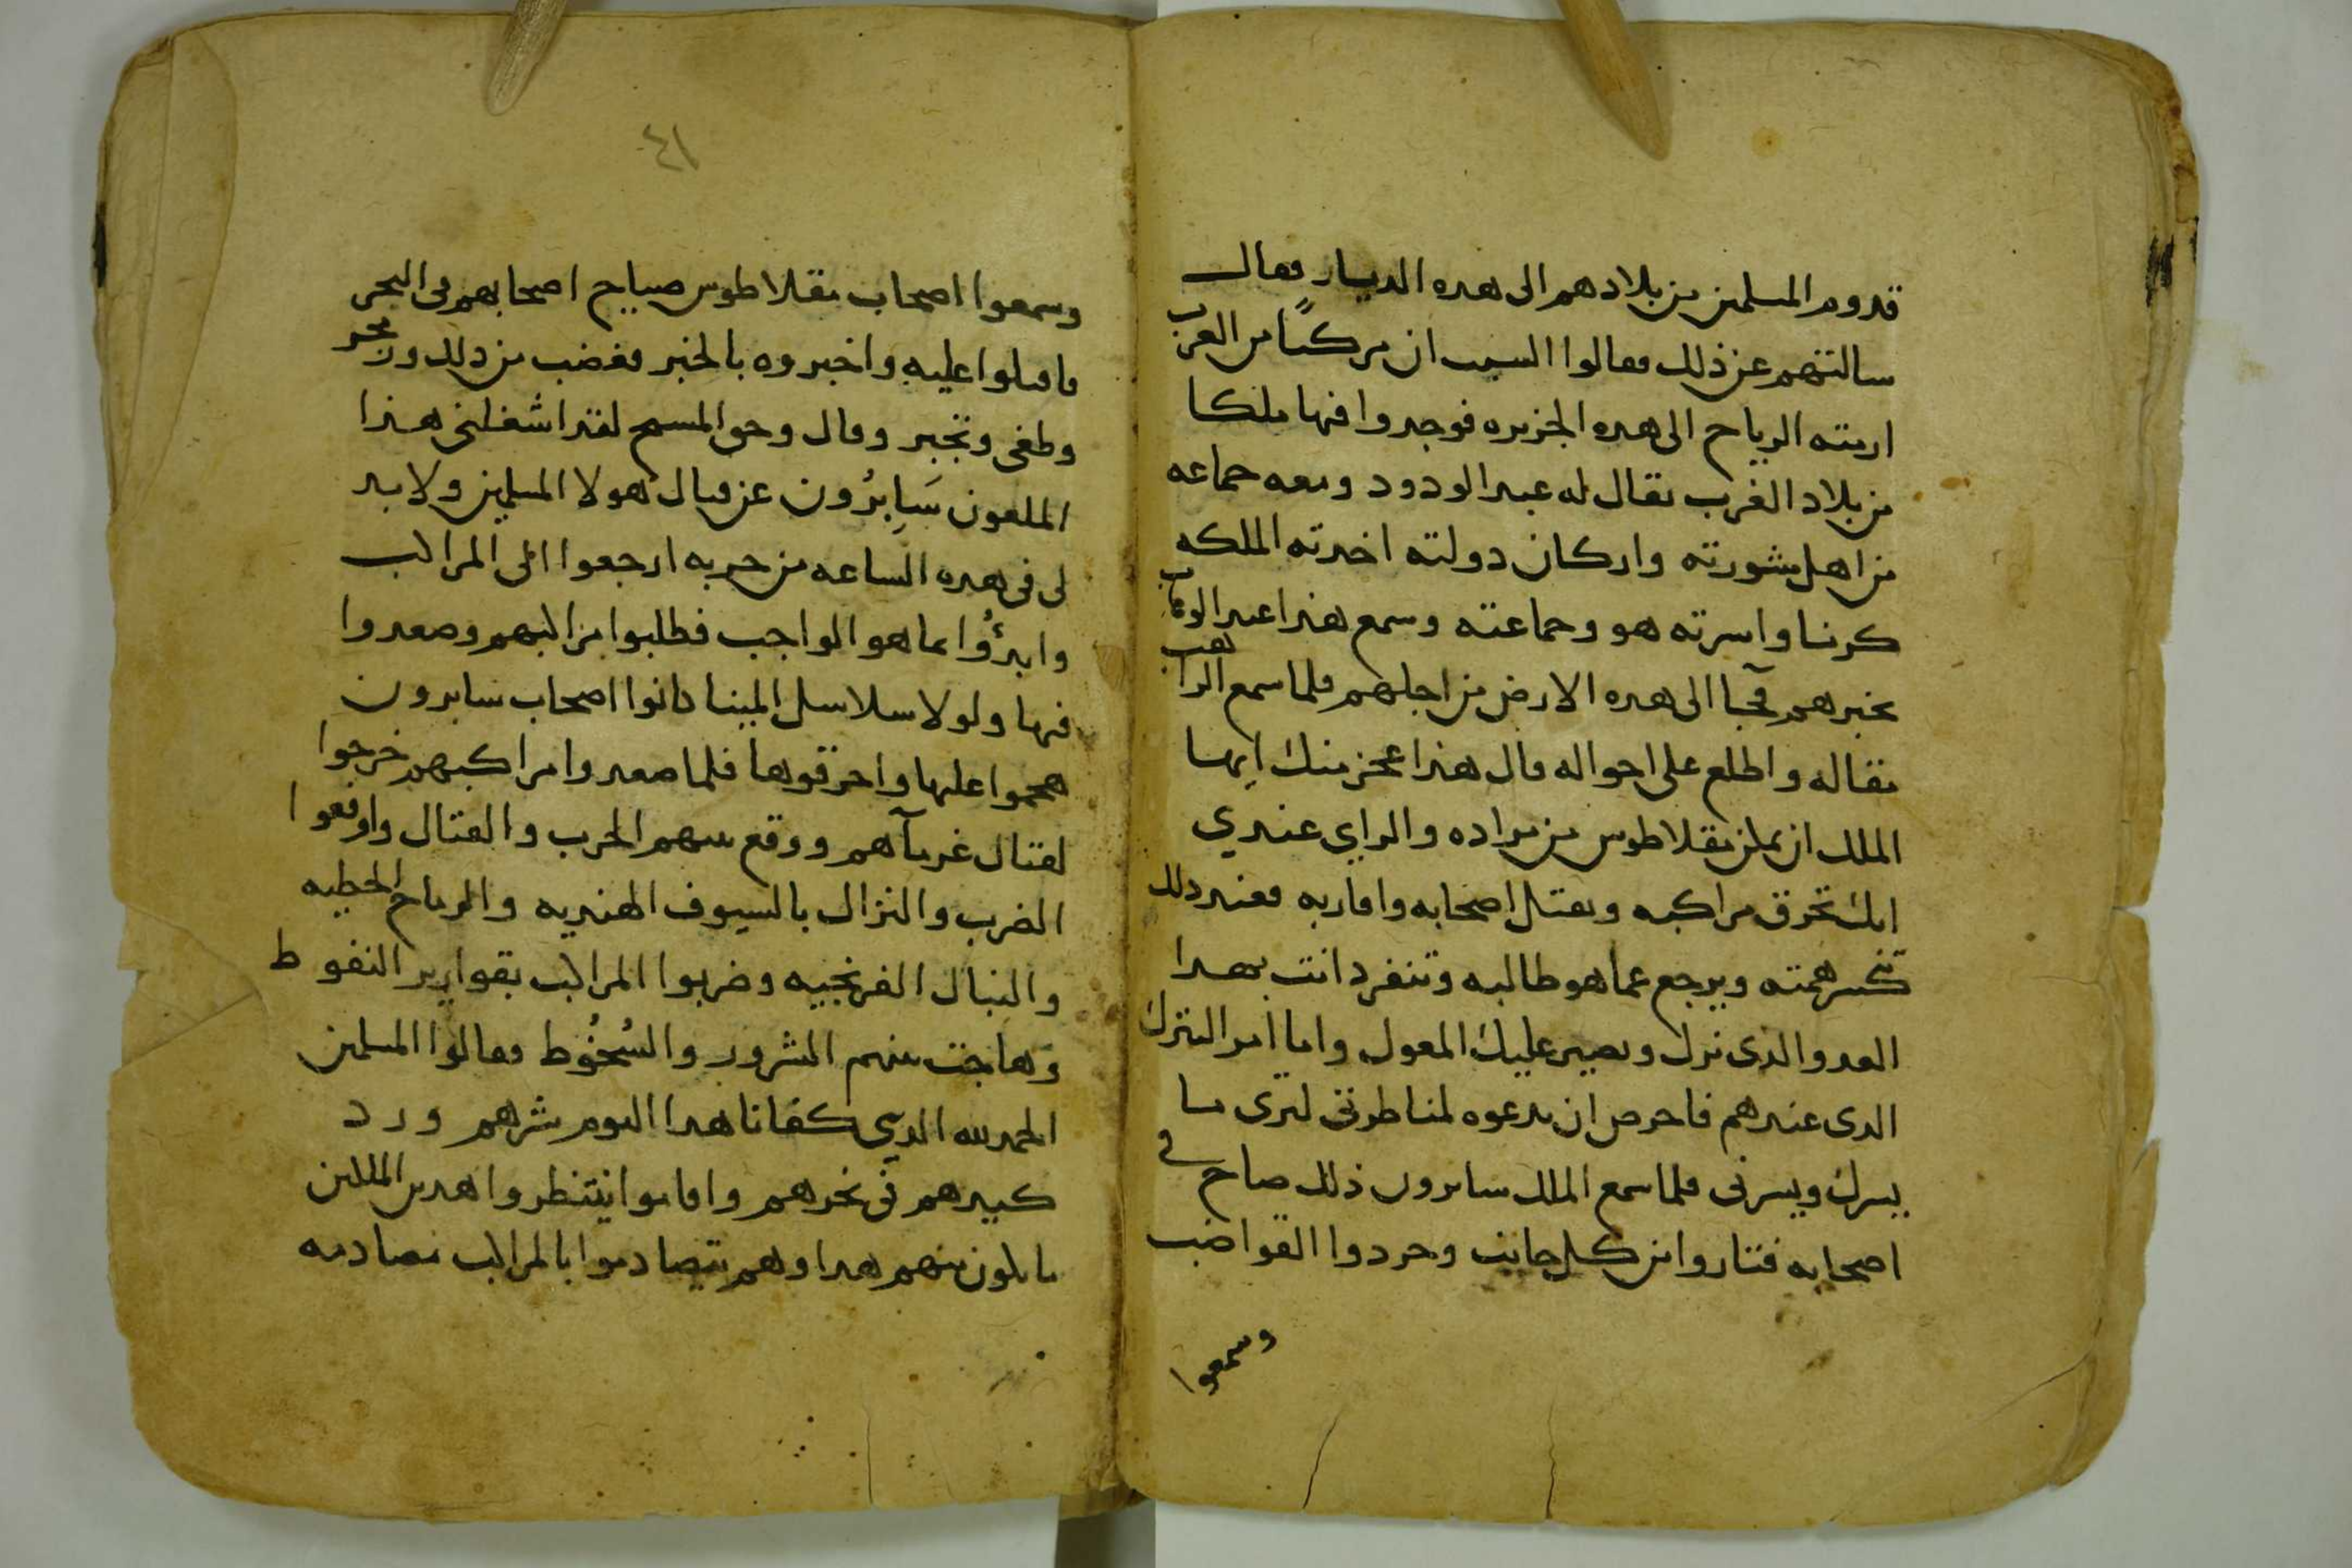 قدوم المسلمين من بلادهم الى هده الديار فقال
سالتهم عن ذلك فقالوا السبب ان مركبًا من العرب
ارمته الرياح الى هده الجزيره فوجدوا فيها ملكا
من بلاد الغرب يقال له عبد الودود ومعه جماعه
من اهل مشورته واركان دولته اخدته الملكه
كرنا واسرته هو وجماعته وسمع هذا عبد الوهاب
بخبرهم فجآ الى هده الارض من اجلهم فلما سمع الراهب
مقاله واطلع على احواله قال هذا عجز منك ايها
الملك ان تمكن مقلاطوس من مراده والراي عندي
انك تحرق مراكبه وتقتل اصحابه واقاربه فعند دلك
تنكسر همته ويرجع عما هو طالبه وتنفرد انت بهدا
العدو الذى نزل ويصير عليك المعول واما امر البترك
الدى عندهم فاحرص ان تدعوه لمناظرتى لترى ما
يسرك ويسرنى فلما سمع الملك سابرون ذلك صاح فى
اصحابه فتاروا من كل جانب وجردوا القواضب
وسمعوا
٤١
وسمعوا اصحاب مقلاطوس صياح اصحابهم فى البحر
فاقبلوا عليه واخبروه بالخبر فغضب من دلك وزمجر
وطغى وتجبر وقال وحق المسيح لقد اشغلنى هذا
الملعون سَابِرُون عن قتال هولا المسلمين ولا بد
لى فى هده الساعه من حربه ارجعوا الى المراكب
وابدؤُا بما هو الواجب فطلبوا مراكبهم وصعدوا
فيها ولولا سلاسل المينا كانوا اصحاب سابرون
هجموا عليها واحرقوها فلما صعدوا مراكبهم خرجوا
لقتال غرمآهم ووقع بينهم الحرب والقتال واوقعوا
الضرب والنزال بالسيوف الهنديه والرماح الخطيه
والنبال الفرنجيه وضربوا المراكب بقوارير النفوط
وَهاجت بينهم الشرور والسُخُوط فقالوا المسلمين
الحمد لله الدي كفانا هدا اليوم شرهم ورد
كيدهم فى نحرهم واقاموا ينتظروا هدين الملكين
ما يكون منهم هدا وهم يتصادموا بالمراكب مصادمه